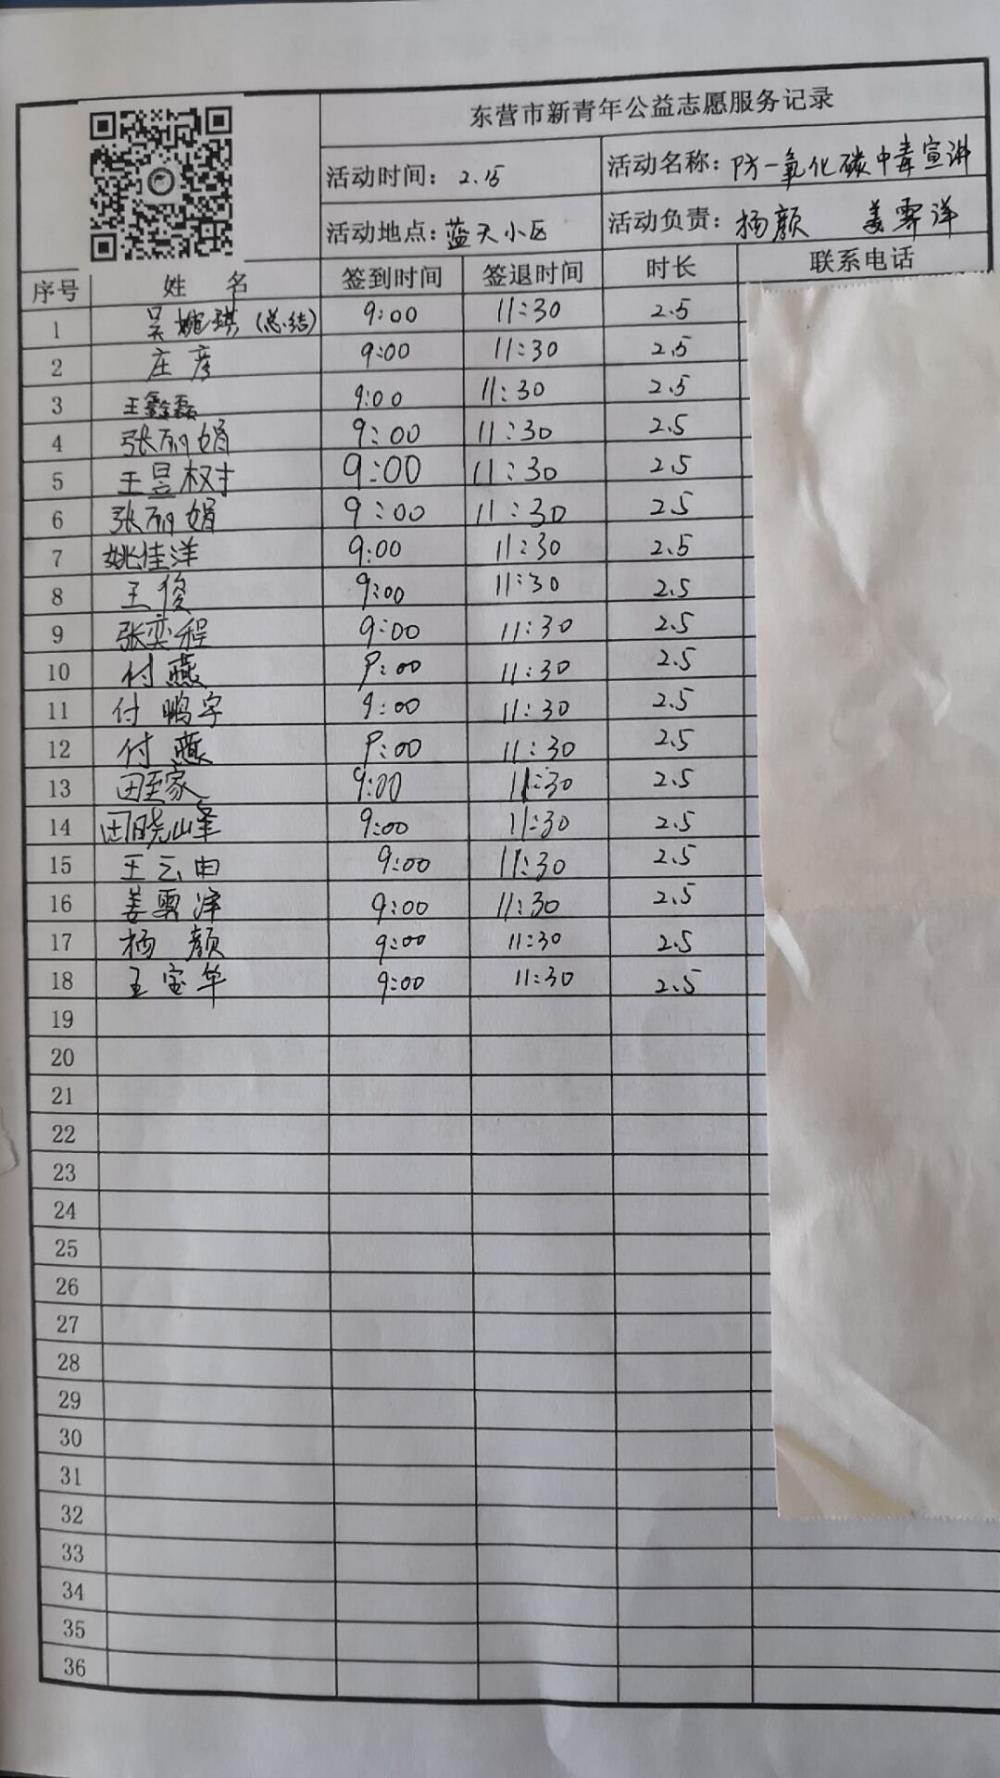 东营市新青年公益志愿服务记录
活动时间: 2.15 活动名称: 防一氧化碳中毒宣讲
活动地点: 蓝天小区 活动负责: 杨颜 姜霁洋
序号 姓 名 签到时间 签退时间 时长 联系电话
1 吴婉琪(总结) 9:00 11:30 2.5
2 庄彦 9:00 11:30 2.5
3 王鑫磊 9:00 11:30 2.5
4 张丽娟 9:00 11:30 2.5
5 王昱权 9:00 11:30 2.5
6 张丽娟 9:00 11:30 2.5
7 姚佳洋 9:00 11:30 2.5
8 王俊 9:00 11:30 2.5
9 张奕程 9:00 11:30 2.5
10 付燕 9:00 11:30 2.5
11 付鹏宇 9:00 11:30 2.5
12 付燕 9:00 11:30 2.5
13 田至家 9:00 11:30 2.5
14 田晓峰 9:00 11:30 2.5
15 王云由 9:00 11:30 2.5
16 姜 9:00 11:30 2.5
17 杨颜 9:00 11:30 2.5
18 王宝华 9:00 11:30 2.5
19
20
21
22
23
24
25
26
27
28
29
30
31
32
33
34
35
36